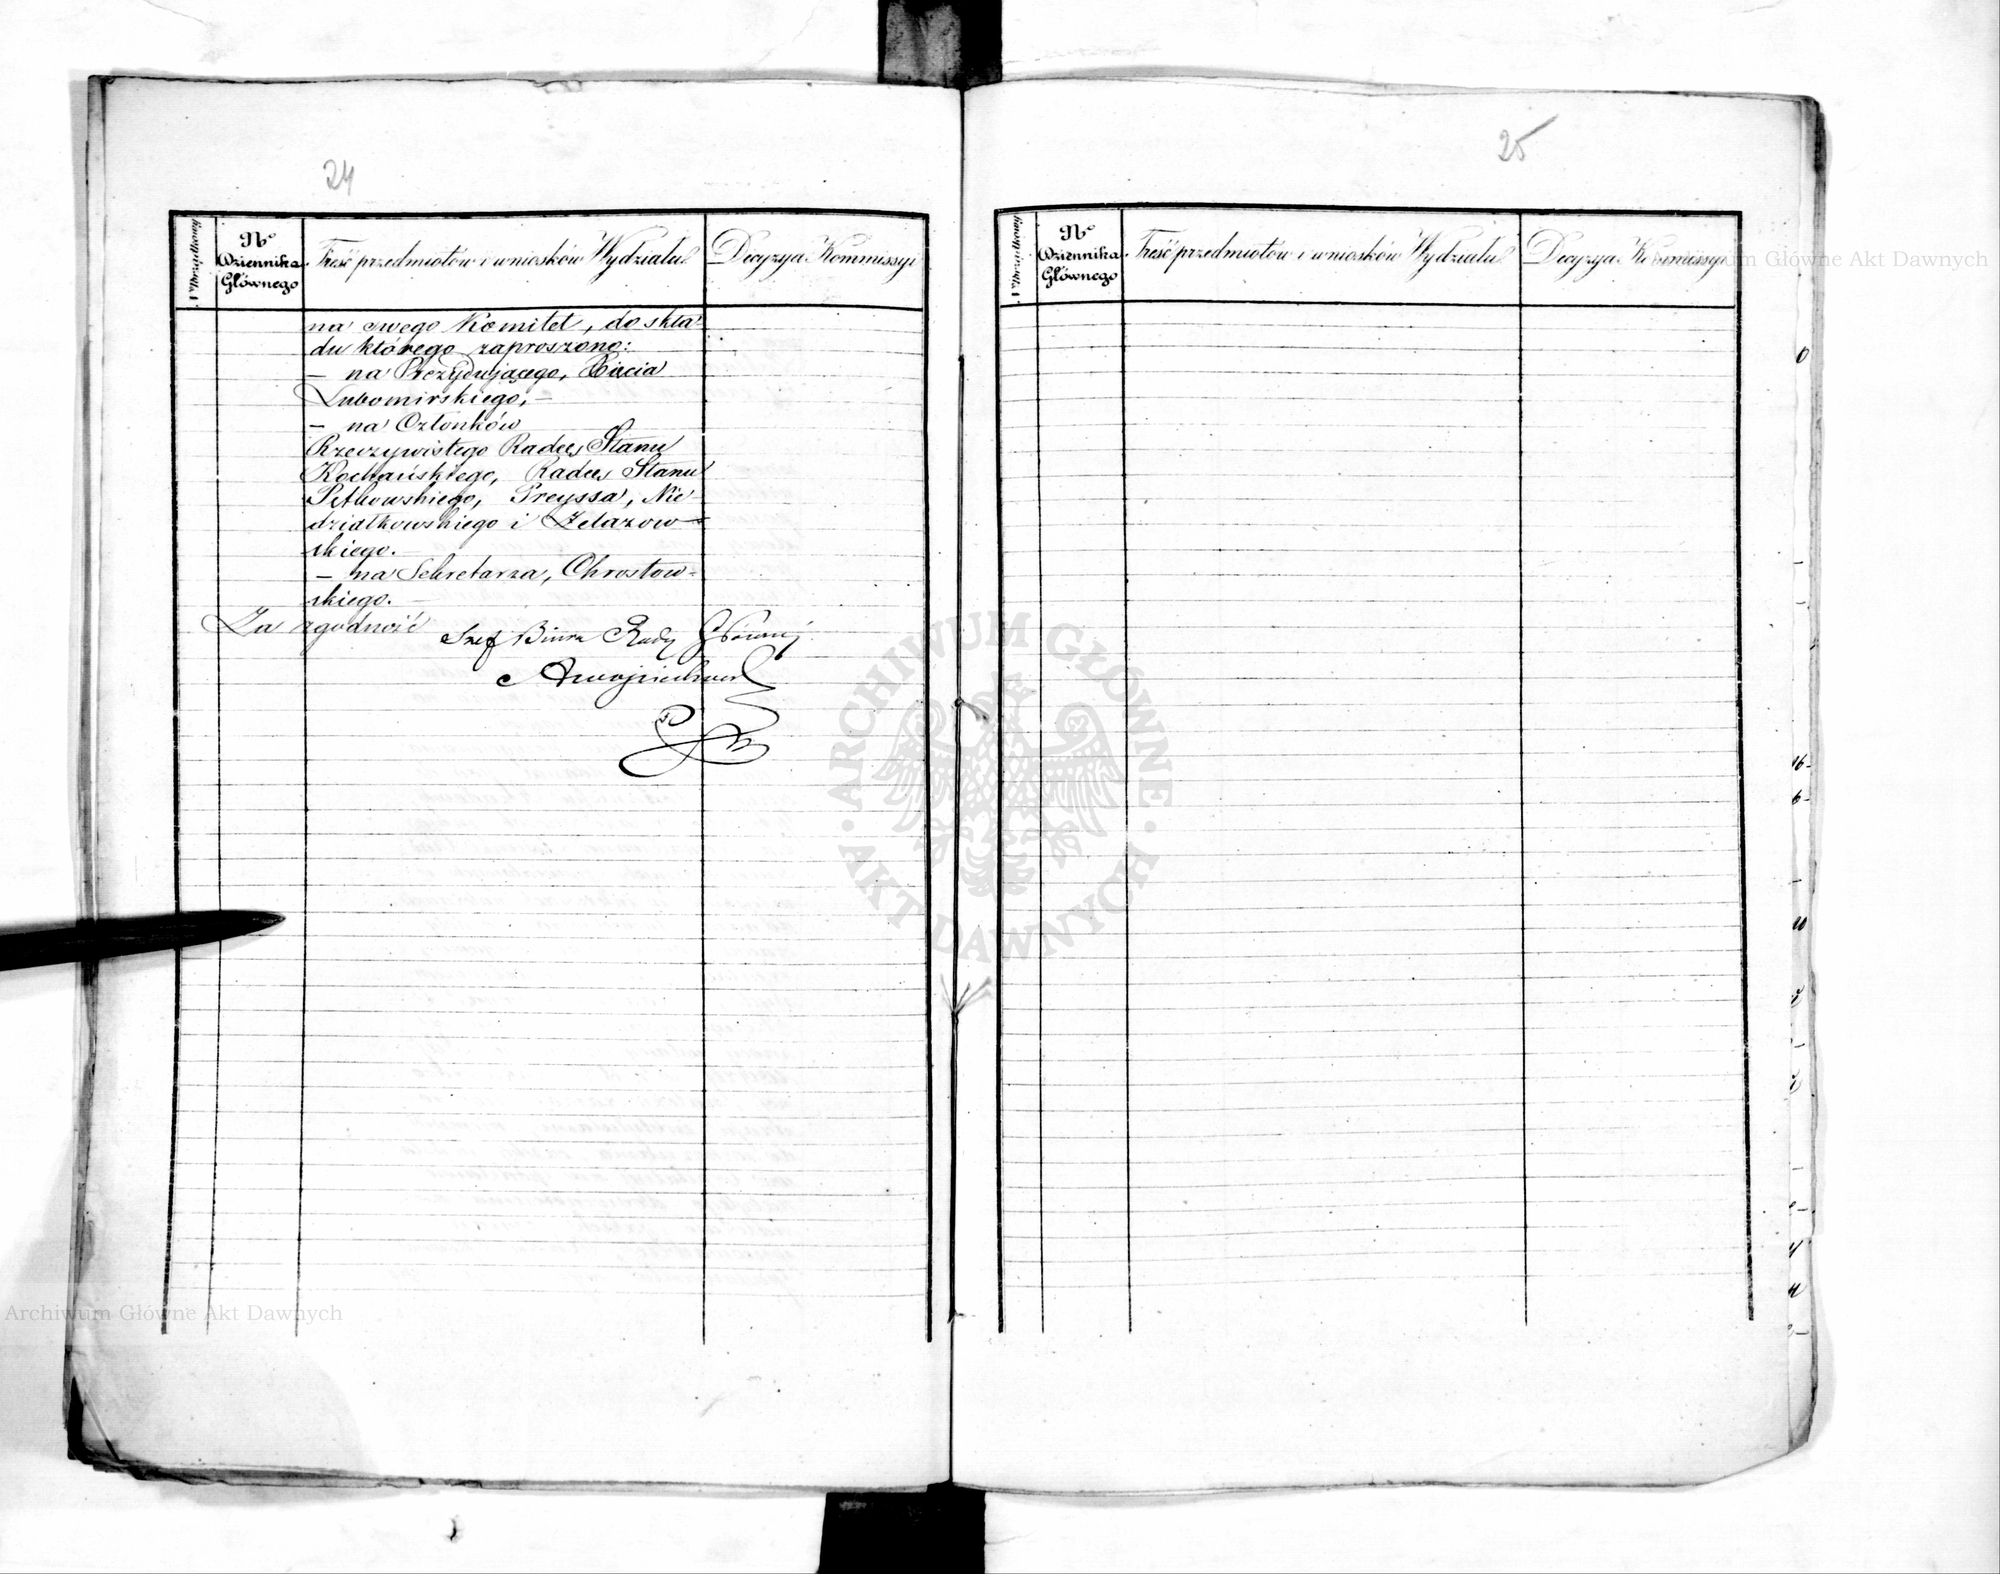 24
N° porządkowy
N°
Dziennika
Głównego
Treść przedmiotów i wniosków Wydziału
Decyzya Kommissyi
na swego Komitet, do skła-
du którego zaproszono:
— na Prezydującego, Xięcia
Lubomirskiego, —
— na Członków
Rzeczywistego Radcę Stanu
Kochańskiego, Radcę Stanu
Pętkowskiego, Preyssa, Nie-
działkowskiego i Żelazow-
skiego. —
— na Sekretarza, Chrostow-
skiego. —
Za zgodność
Szef Biura Rady Głównej
25
N° porządkowy
N°
Dziennika
Głównego
Treść przedmiotów i wniosków Wydziału
Decyzya Kommissyi
Archiwum Główne Akt Dawnych
ARCHIWUM GŁÓWNE
AKT DAWNYCH
Archiwum Główne Akt Dawnych